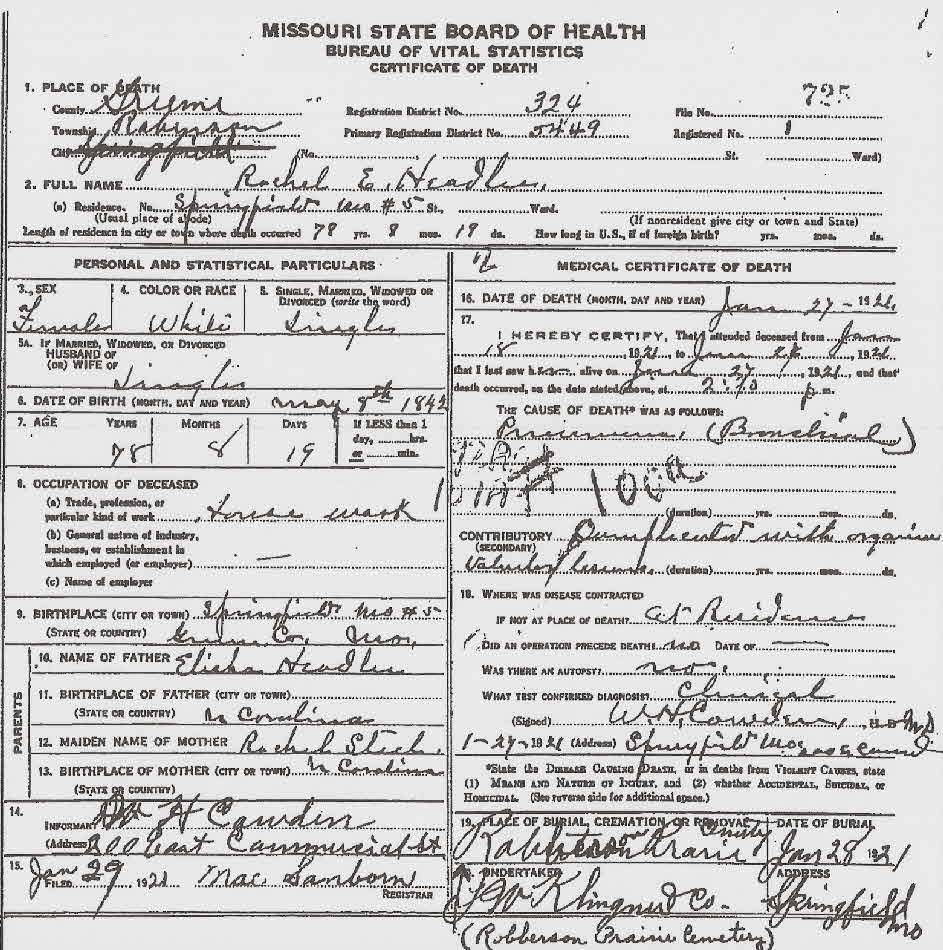 MISSOURI STATE BOARD OF HEALTH
BUREAU OF VITAL STATISTICS
CERTIFICATE OF DEATH
1. PLACE OF DEATH
County Greene Registration District No. 324 File No. 725
Township Robberson Primary Registration District No. 5449 Registered No. 1
City Springfield (No. St. Ward)
2. FULL NAME Rachel E. Headlee
(a) Residence. No. Springfield Mo # 5 St., Ward.
(Usual place of abode) (If nonresident give city or town and State)
Length of residence in city or town where death occurred 78 yrs. 8 mos. 19 ds. How long in U.S., if of foreign birth? yrs. mos. ds.
PERSONAL AND STATISTICAL PARTICULARS
3. SEX 4. COLOR OR RACE 5. SINGLE, MARRIED, WIDOWED OR
DIVORCED (write the word)
Female White Single
5A. IF MARRIED, WIDOWED, OR DIVORCED
HUSBAND OF
(OR) WIFE OF
Single
6. DATE OF BIRTH (MONTH, DAY AND YEAR) May 8th 1842
7. AGE YEARS MONTHS DAYS If LESS than 1
day, hrs.
78 8 19 or min.
8. OCCUPATION OF DECEASED
(a) Trade, profession, or
particular kind of work House work
(b) General nature of industry,
business, or establishment in
which employed (or employer) —
(c) Name of employer
9. BIRTHPLACE (CITY OR TOWN) Springfield Mo # 5
(STATE OR COUNTRY) Green Co, Mo.
PARENTS
10. NAME OF FATHER Elisha Headlee
11. BIRTHPLACE OF FATHER (CITY OR TOWN)
(STATE OR COUNTRY) N Carolina
12. MAIDEN NAME OF MOTHER Rachel Steel
13. BIRTHPLACE OF MOTHER (CITY OR TOWN) N Carolina
(STATE OR COUNTRY)
14.
INFORMANT W H Cowden
(Address) 200 East Commercial St
15.
FILED Jan 29 1921 Mac Sanborn
REGISTRAR
MEDICAL CERTIFICATE OF DEATH
16. DATE OF DEATH (MONTH, DAY AND YEAR) Jan 27 - 1921
17.
I HEREBY CERTIFY, That I attended deceased from Jan
18, 1921, to Jan 26, 1921
that I last saw h alive on Jan 27, 1921, and that
death occurred, on the date stated above, at p m.
THE CAUSE OF DEATH* WAS AS FOLLOWS:
Pneumonia, (Bronchial)
100a
(duration) yrs. mos. ds.
CONTRIBUTORY Complicated with organic
(SECONDARY)
Valvular lesion. (duration) yrs. mos. ds.
18. WHERE WAS DISEASE CONTRACTED
IF NOT AT PLACE OF DEATH? at Residence
DID AN OPERATION PRECEDE DEATH? no DATE OF —
WAS THERE AN AUTOPSY? no.
WHAT TEST CONFIRMED DIAGNOSIS? Clinical
(Signed) W.H. Cowden, M.D.
1-27-1921 (Address) Springfield Mo. 200 E Comml
*State the DISEASE CAUSING DEATH, or in deaths from VIOLENT CAUSES, state
(1) MEANS AND NATURE OF INJURY, and (2) whether ACCIDENTAL, SUICIDAL, or
HOMICIDAL. (See reverse side for additional space.)
19. PLACE OF BURIAL, CREMATION OR REMOVAL DATE OF BURIAL
Robberson Prarie Cemetery Jan 28 1921
20. UNDERTAKER ADDRESS
J W Klingner & Co. Springfield
Mo
(Robberson Prairie Cemetery)